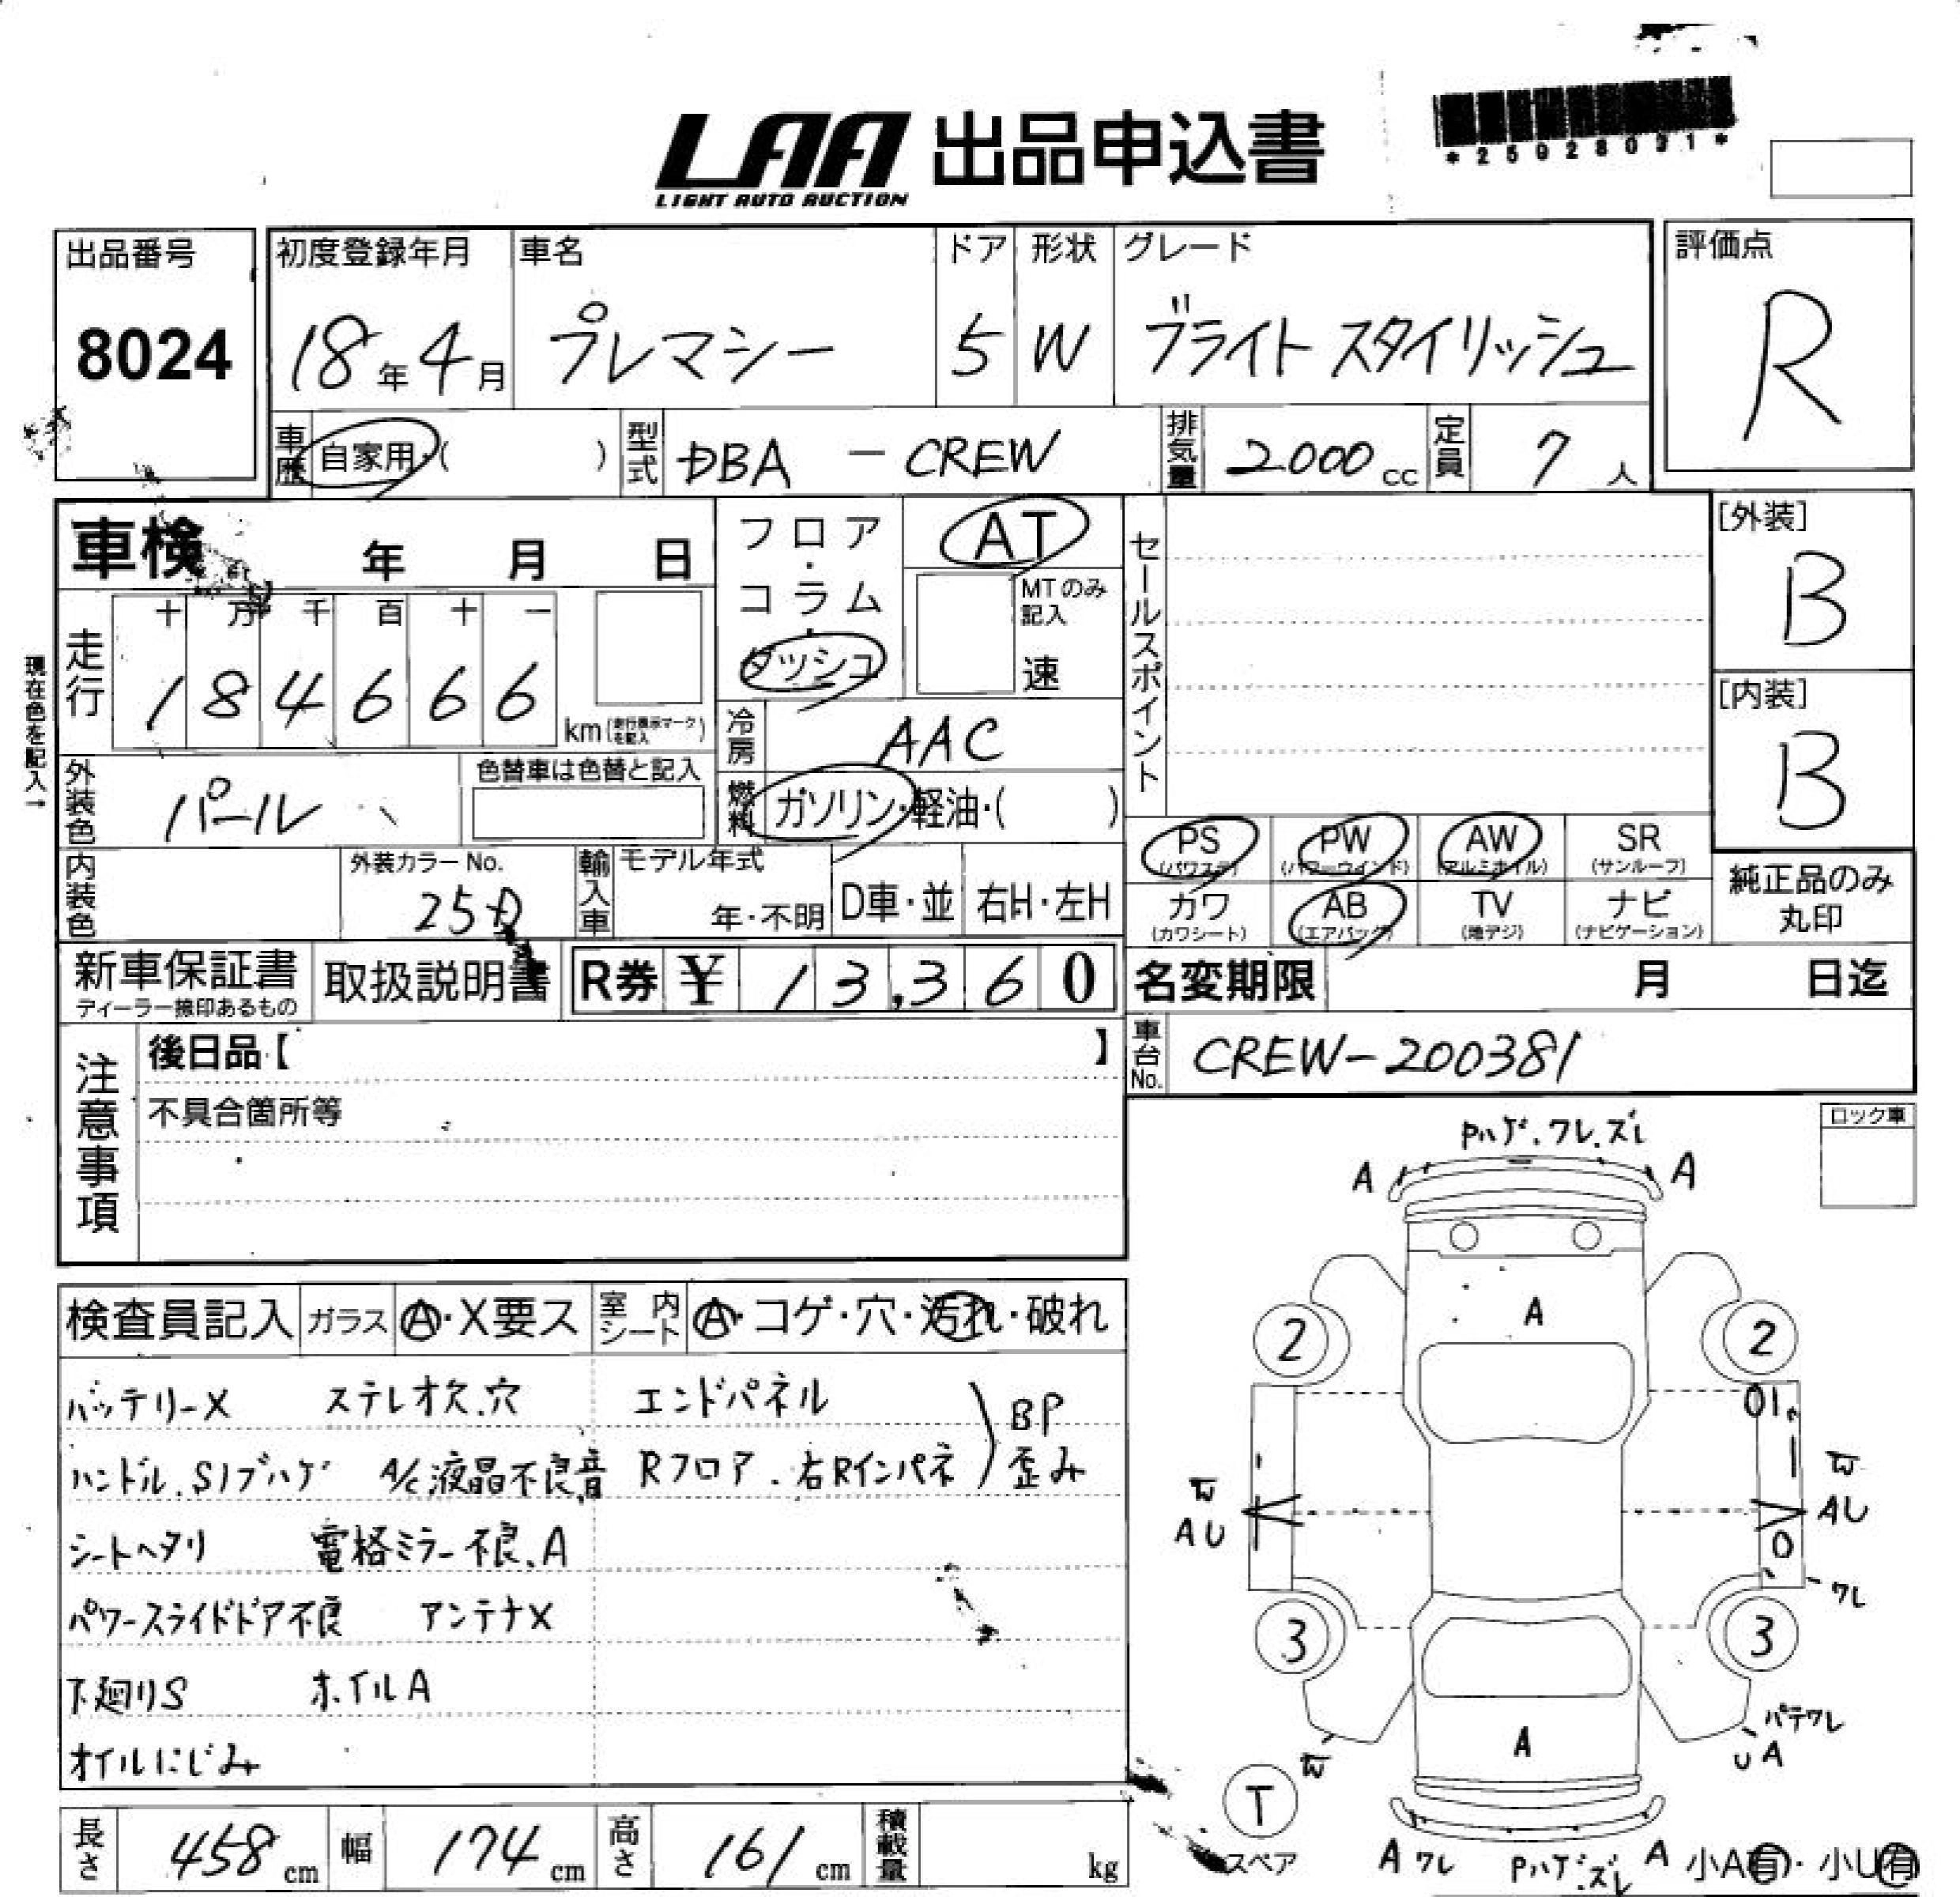 LAA 出品申込書
LIGHT AUTO AUCTION
*25028031*
出品番号
8024
初度登録年月 車名 ドア 形状 グレード
18年4月 プレマシー 5 W ブライト スタイリッシュ
評価点
R
車歴 自家用・( ) 型式 DBA - CREW 排気量 2000cc 定員 7人
車検 年 月 日
フロア・コラム・ダッシュ
AT
MTのみ記入
速
セールスポイント
[外装]
B
[内装]
B
現在色を記入→
走行 十 万 千 百 十 一
184666 km(走行表示マークを記入)
冷房 AAC
外装色 パール 色替車は色替と記入
燃料 ガソリン・軽油・( )
内装色 外装カラーNo. 25D
輸入車 モデル年式 年・不明 D車・並 右H・左H
PS (パワステ) PW (パワーウインド) AW (アルミホイル) SR (サンルーフ)
カワ (カワシート) AB (エアバッグ) TV (地デジ) ナビ (ナビゲーション)
純正品のみ丸印
新車保証書 ディーラー捺印あるもの 取扱説明書 R券 ¥ 13,360
名変期限 月 日迄
車台No. CREW-200381
注意事項
後日品【 】
不具合箇所等
ロック車
Pハゲ.ワレ.ズレ
A A
A
2 2
検査員記入 ガラス A・X要ス 室内シート A・コゲ・穴・汚れ・破れ
バッテリーX ステレオ欠.穴 エンドパネル
BP
ハンドル.Sノブハゲ A/C液晶不良音 Rフロア.右Rインパネ 歪み
シートヘタリ 電格ミラー不良.A
パワースライドドア不良 アンテナX
下廻りS ホイルA
オイルにじみ
AU AU
ワレ
3 3
パテワレ
UA
A
T
スペア
A ワレ Pハゲ.ズレ A 小A有・小U有
長さ 458cm 幅 174cm 高さ 161cm 積載量 kg